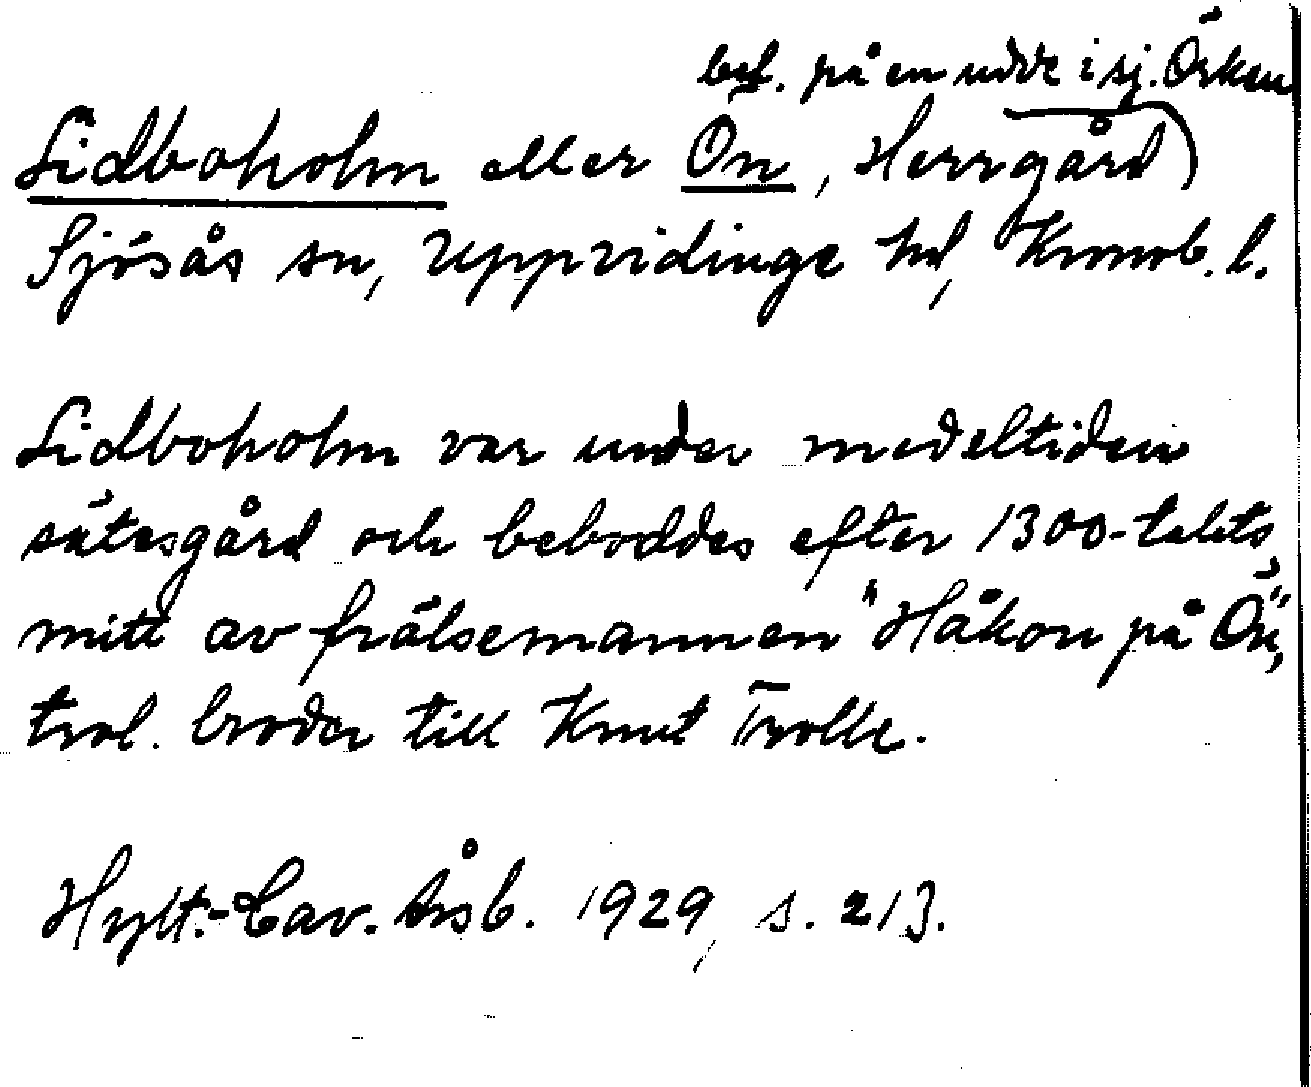 bel. på en udde i sj. Örken
Lidboholm eller Ön, Herrgård)
Sjösås sn, Uppvidinge hd, Kronob. l.
Lidboholm var under medeltiden
sätesgård och beboddes efter 1300-talets
mitt av frälsemannen "Håkon på Ön",
trol. broder till Knut Trolle.
Hylt.-Cav. Årsb. 1929, s. 213.